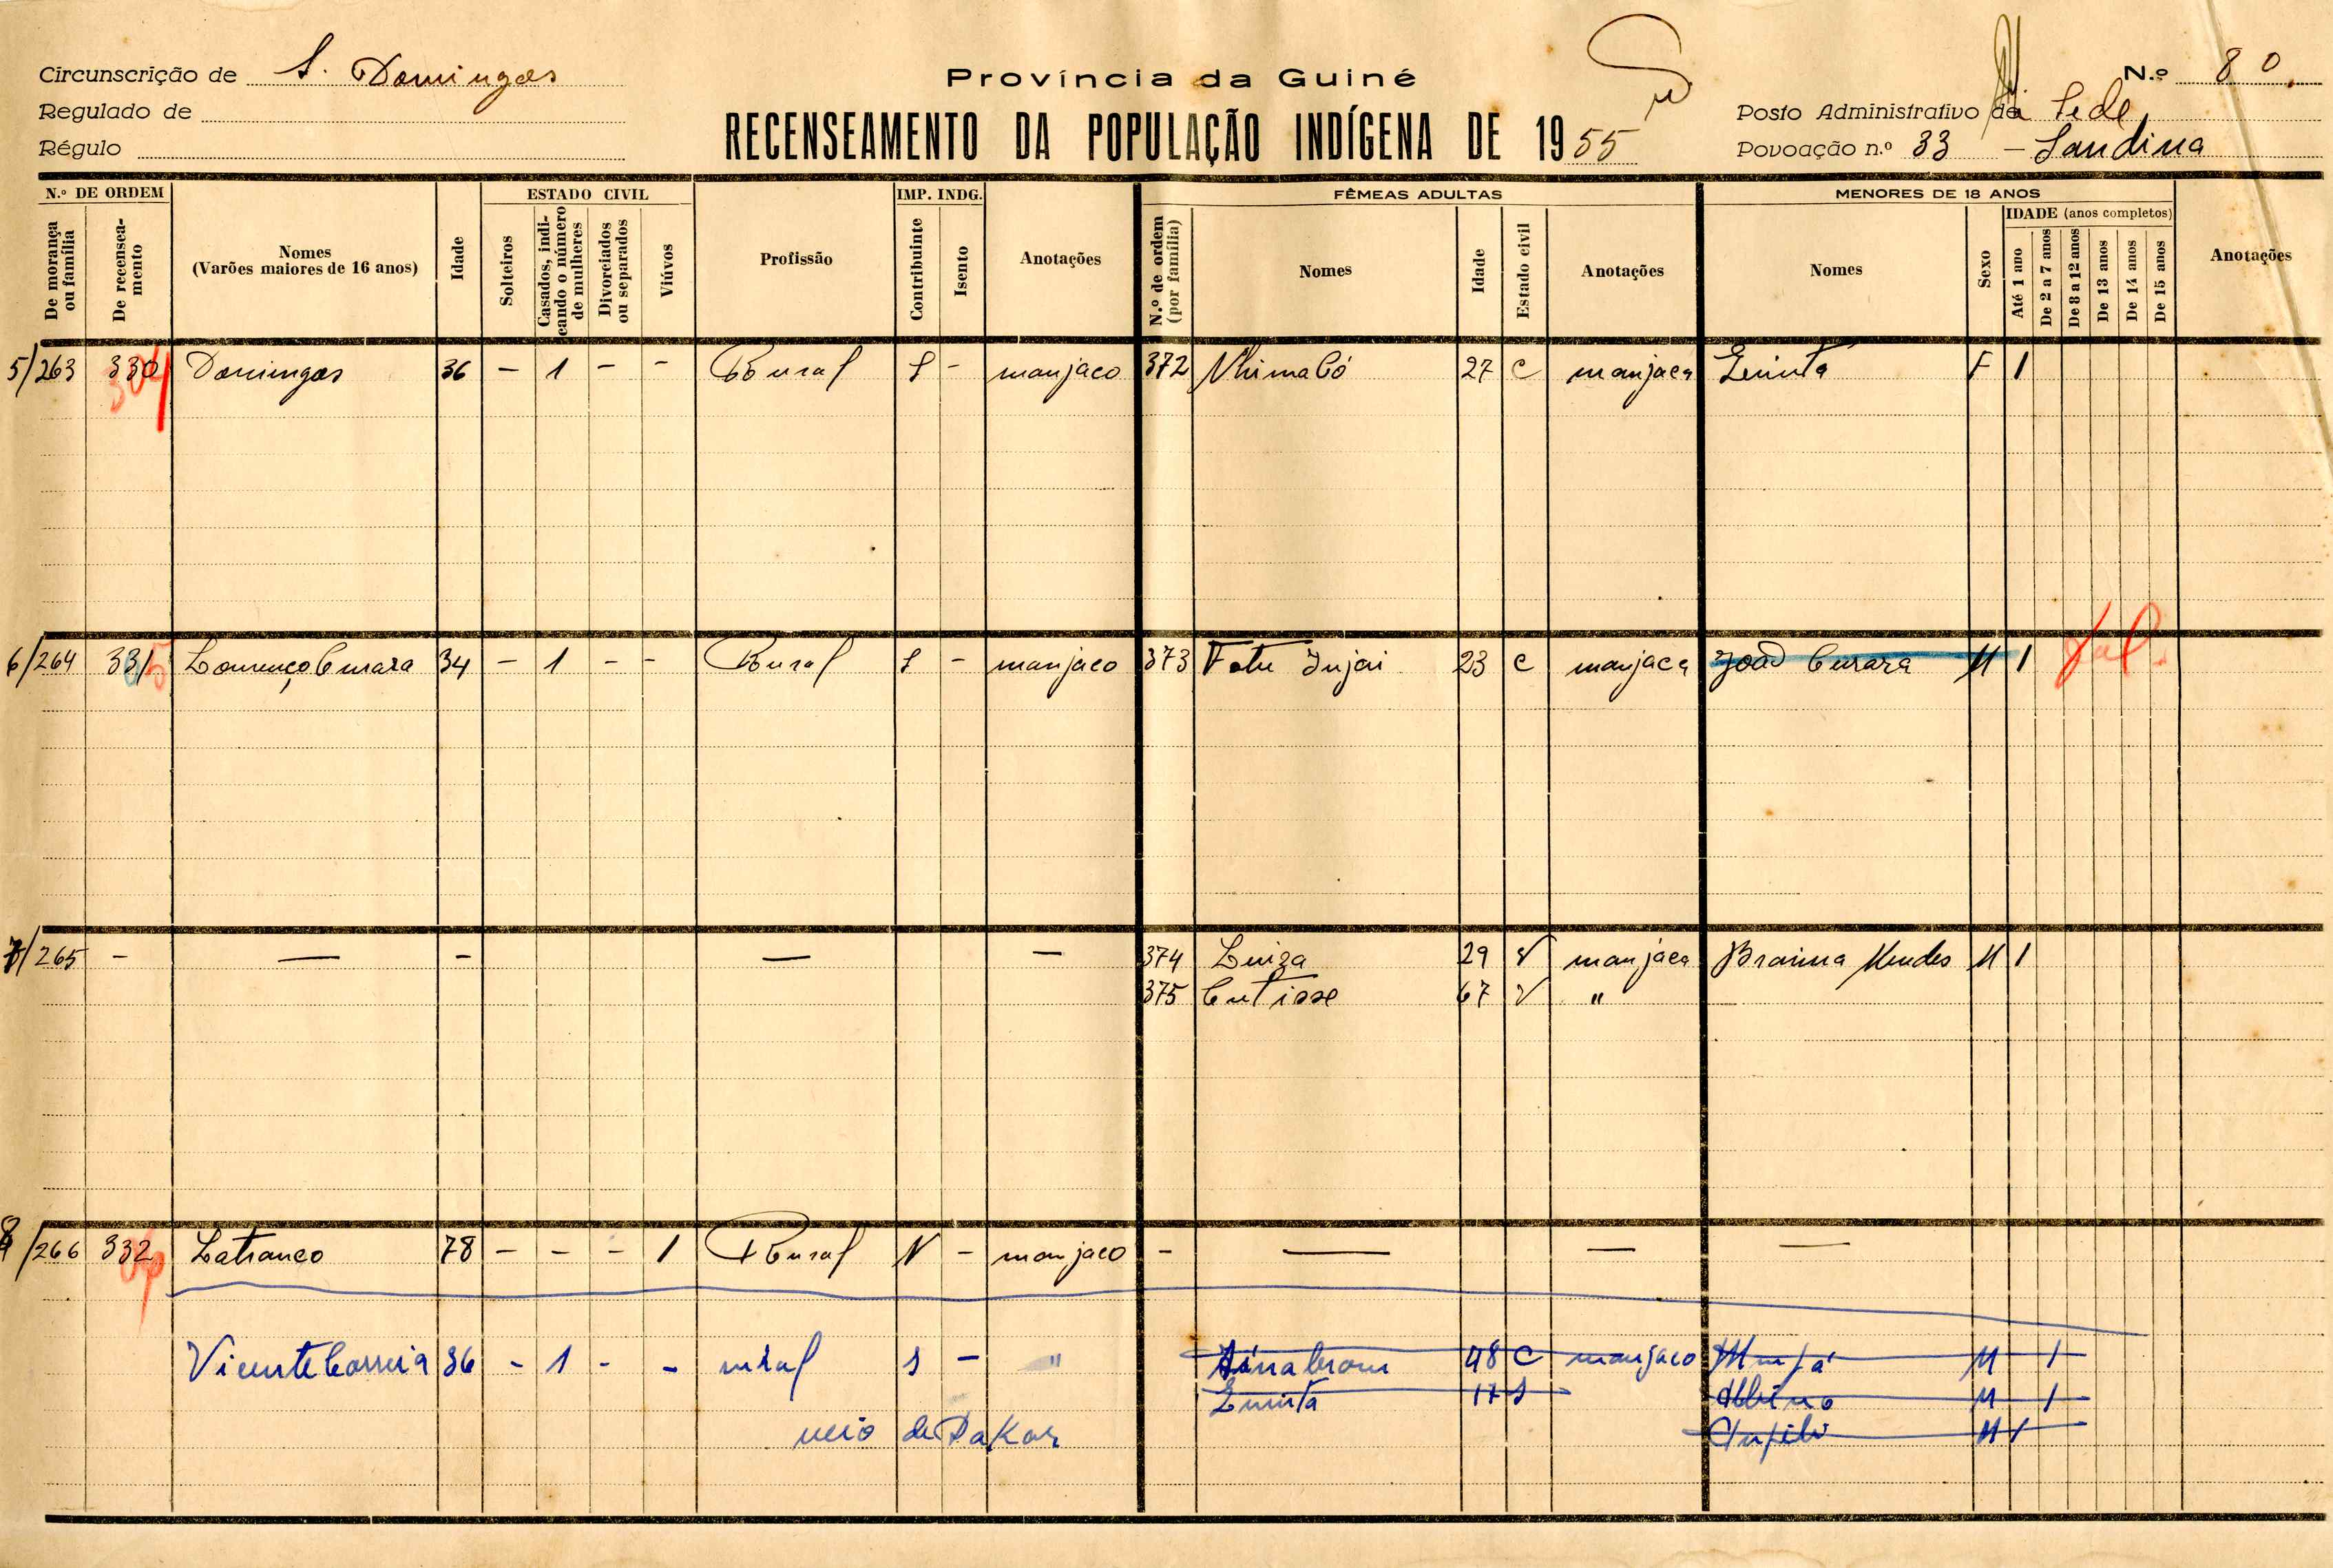 Circunscrição de S. Domingos
Regulado de
Régulo
Província da Guiné
RECENSEAMENTO DA POPULAÇÃO INDÍGENA DE 1955
N.º 80
Posto Administrativo da Sede
Povoação n.º 33 — Sandina
N.º DE ORDEM
De morança ou família
De recenseamento
Nomes
(Varões maiores de 16 anos)
Idade
ESTADO CIVIL
Solteiros
Casados, indicando o número de mulheres
Divorciados ou separados
Viúvos
Profissão
IMP. INDG.
Contribuinte
Isento
Anotações
FÊMEAS ADULTAS
N.º de ordem (por família)
Nomes
Idade
Estado civil
Anotações
MENORES DE 18 ANOS
Nomes
Sexo
IDADE (anos completos)
Até 1 ano
De 2 a 7 anos
De 8 a 12 anos
De 13 anos
De 14 anos
De 15 anos
Anotações
5/263 330 Domingos 36 - 1 - - Rural S - manjaco 372 27 C manjaca Quinta F 1
304
6/264 331 Lourenço Curara 34 - 1 - - Rural S - manjaco 373 Fatu Injai 23 C manjaca João Curara M 1 Fal.
5
7/265 - — - — — 374 Luiza 29 V manjaca Braima Mendes M 1
375 Cutisse 67 V "
8/266 332 Latranco 78 - - - 1 Rural N - manjaco - — — —
06
Vicente Correia 36 - 1 - - rural S - " 48 C manjaco M 1
Quinta 17 S Albino M 1
veio de Dakar M 1